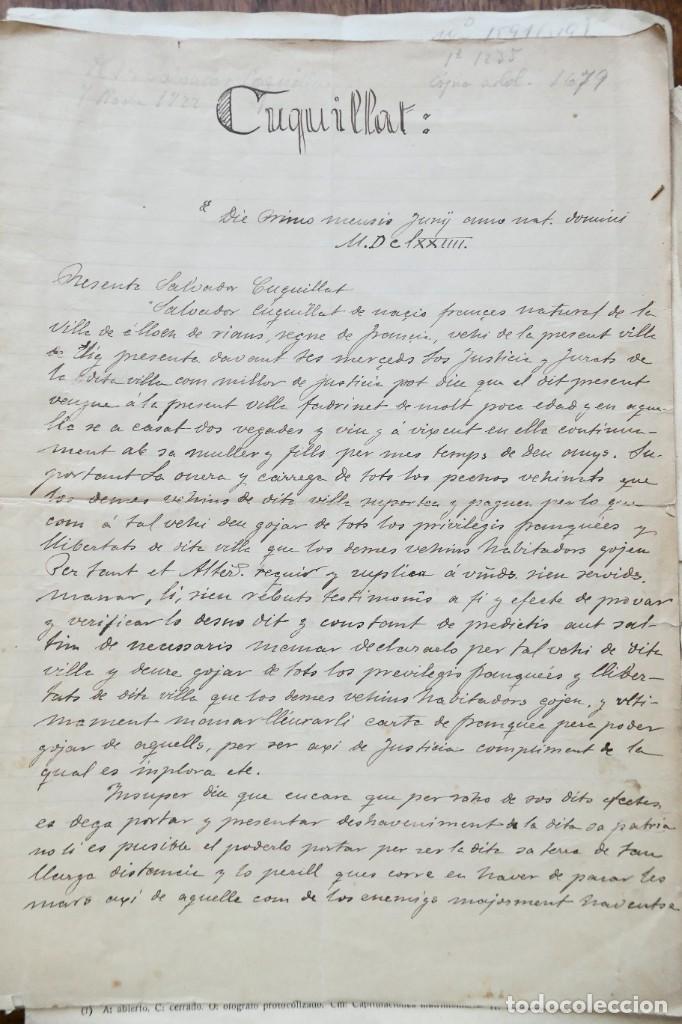 1679
Cuquillat:
Die Primo mensis Junij anno nat. domini
M.DClxxiiii.
Presenta Salvador Cuquillat
Salvador Cuquillat de nagio françes natural de la
villa de rians, regne de francia, vehi de la present villa
presenta davant ses merçeds los Justicia y Jurats de
la dita villa com millor de justicia pot diu que el dit present
vengue á la present villa fadrinet de molt poca edad y en aque-
lla se a casat dos vegades y viu y á vixcut en ella continua-
ment ab sa muller y fills per mes temps de deu anys. Su-
portant la y cárrega de tots los vehinats que
los demes vehins de dita villa suporten y paguen per lo que
com á tal vehi deu gojar de tots los privilegis franquées y
llibertats de dita villa que los demes vehins habitadors gojen
Per tant et Alter. requir y suplica á sien servids,
manar, li, sien rebuts testimonis a fi y efecte de provar
y verificar lo desus dit y constant de predictis aut sal-
tim de necessaris manar declararlo per tal vehi de dita
villa y deure gojar de tots los previlegis franqueés y lliber-
tats de dita villa que los demes vehins habitadors gojen, y ulti-
mament manar lliurarli carta de franquea pera poder
gojar de aquells, per ser axi de Justicia compliment de la
qual es implora etc.
Insuper diu que encara que per de sos dits efectes
es dega portar y presentar deshaveniment de la dita sa patria
no li es pusible el poderlo portar per ser la dita sa terra de tan
llarga distancia y lo perill ques corre en haver de pasar les
mars axi de aquells com de los enemigs majorment havent se
(1) A: abierto. C: cerrado. O: ológrafo protocolizado. Cm: Capitulaciones
todocoleccion